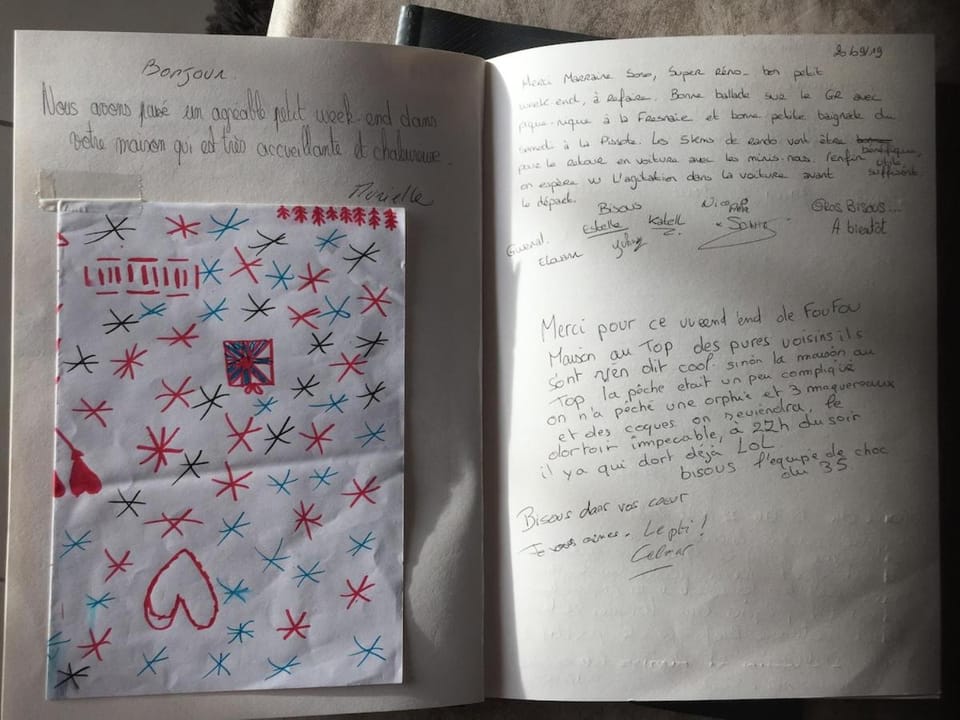 Bonjour.
Nous avons passé un agréable petit week-end dans
votre maison qui est très accueillante et chaleureuse.
Murielle
20/09/19
Merci Marraine Soso, Super Réno. bon petit
week-end, à refaire. Bonne ballade sur le GR avec
pique-nique à la Fresnaie et bonne petite baignade du
samedi à la Pissote. Les 5kms de rando vont être bénéfiques,
pour le retour en voiture avec les minis-nous. (enfin utile
on espère vu l'agitation dans la voiture avant suffisant
le départ.
Bisous
Estelle Katell
Gros Bisous...
A bientôt
Merci pour ce wueend'end de FouFou
Maison au Top des pures voisins ils
sont rien dit cool sinon la maison au
Top la pêche etait un peu compliqué
on n'a pêché une orphie et 3 maquereaux
et des coques on reviendra, le
dortoir impecable, à 22h du soir
il y a qui dort déjà LoL
bisous l'equipie de choc
du 35
Bisous dans vos cœur
Je vous aimes. Le pti !